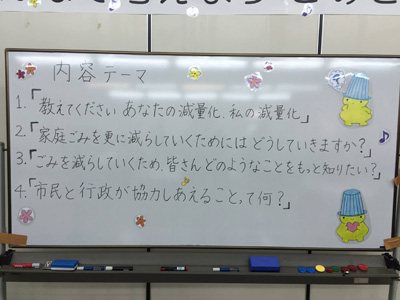 内容テーマ
1.「教えてください あなたの減量化、私の減量化」
2.「家庭ごみを更に減らしていくためには どうしていきますか?」
3.「ごみを減らしていくため、皆さんどのようなことをもっと知りたい?」
4.「市民と行政が協力しあえること、って何?」